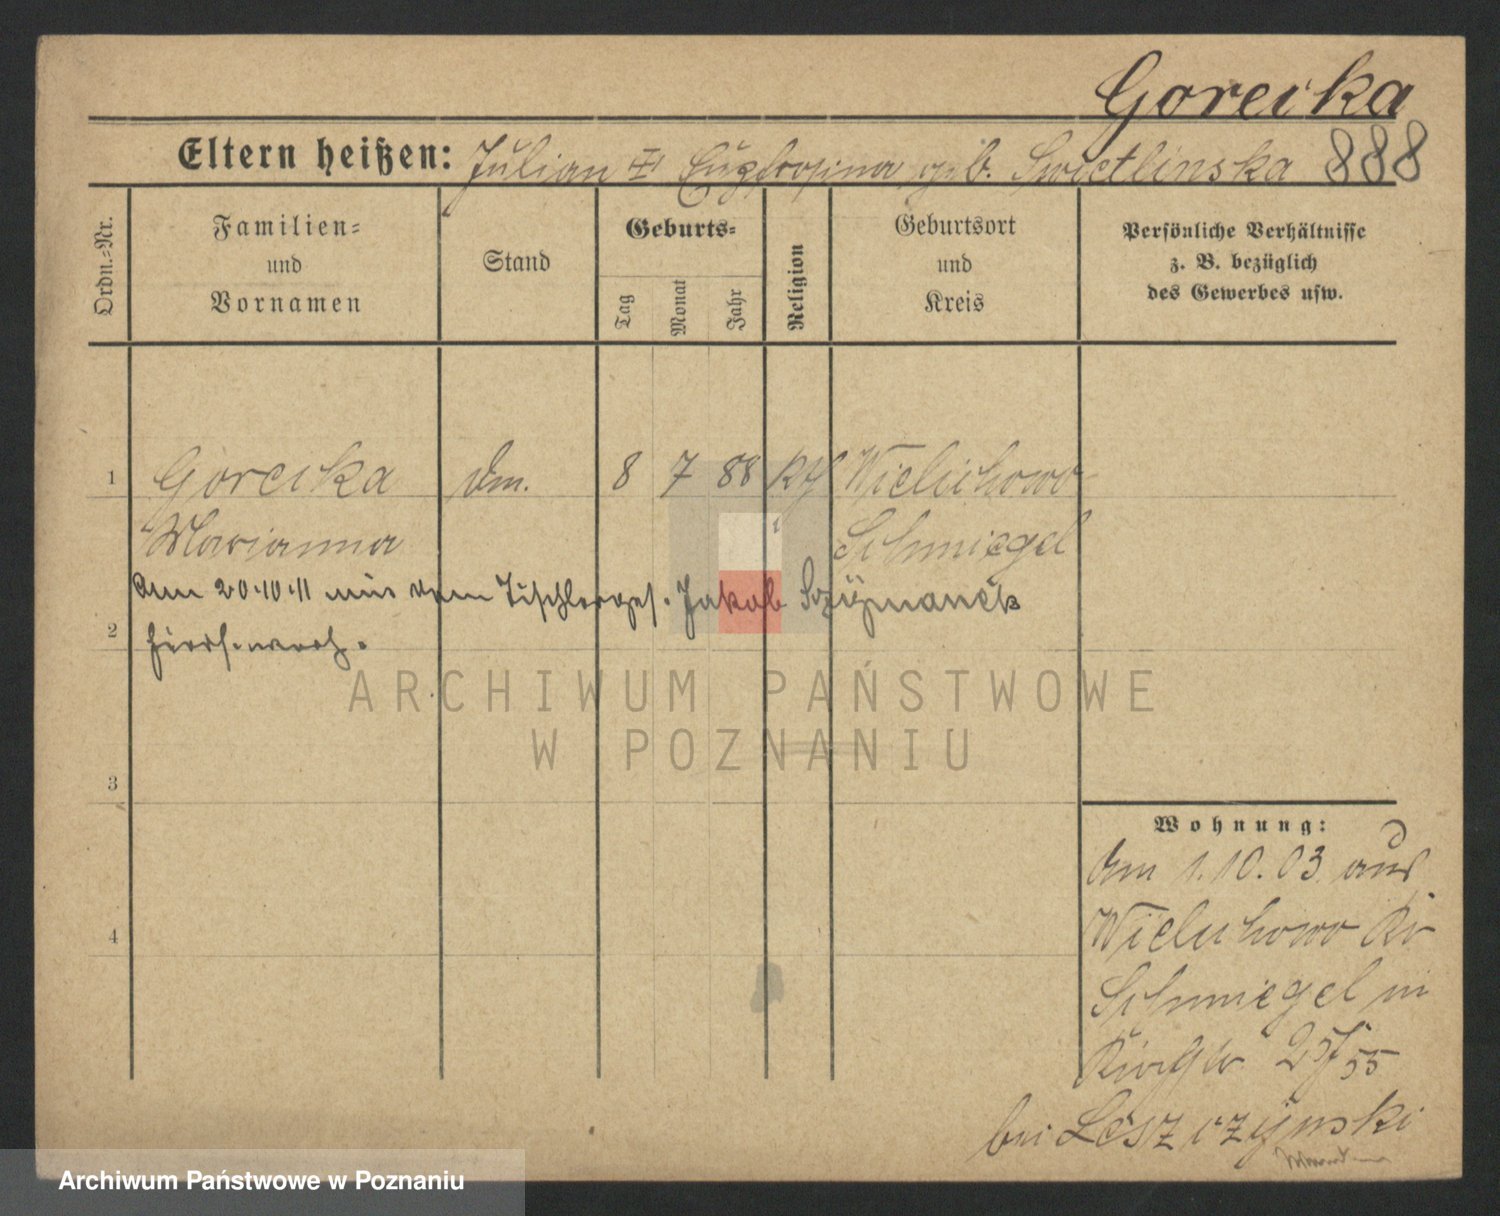 Goreika
Eltern heißen: Julian u Eufrosina geb. Swietlinska 888
Ordn.-Nr.
Familien-
und
Vornamen
Stand
Geburts-
Tag
Monat
Jahr
Religion
Geburtsort
und
Kreis
Persönliche Verhältnisse
z. B. bezüglich
des Gewerbes usw.
1 Goreika Dm. 8 7 88 Kth Wielichowo
Marianna Schmiegel
Am 20.10.11 mit dem Tischlerges. Jakob
2
ARCHIWUM PAŃSTWOWE
W POZNANIU
3
4
Wohnung:
Am 1.10.03 aus
Wielichowo Kr
Schmiegel in
55
bei Leszczynski
Archiwum Państwowe w Poznaniu